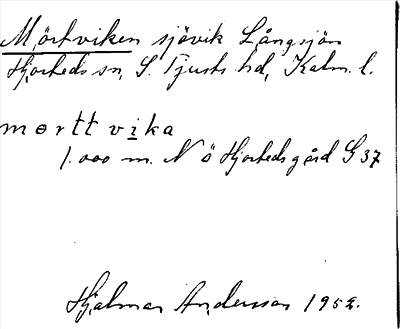 Mörtviken sjövik Långsjön
Hjorteds sn, S. Tjusts hd, Kalm. l.
mortt vika
1.000 m. N ö Hjorteds gård G 37
Hjalmar Andersson 1952.